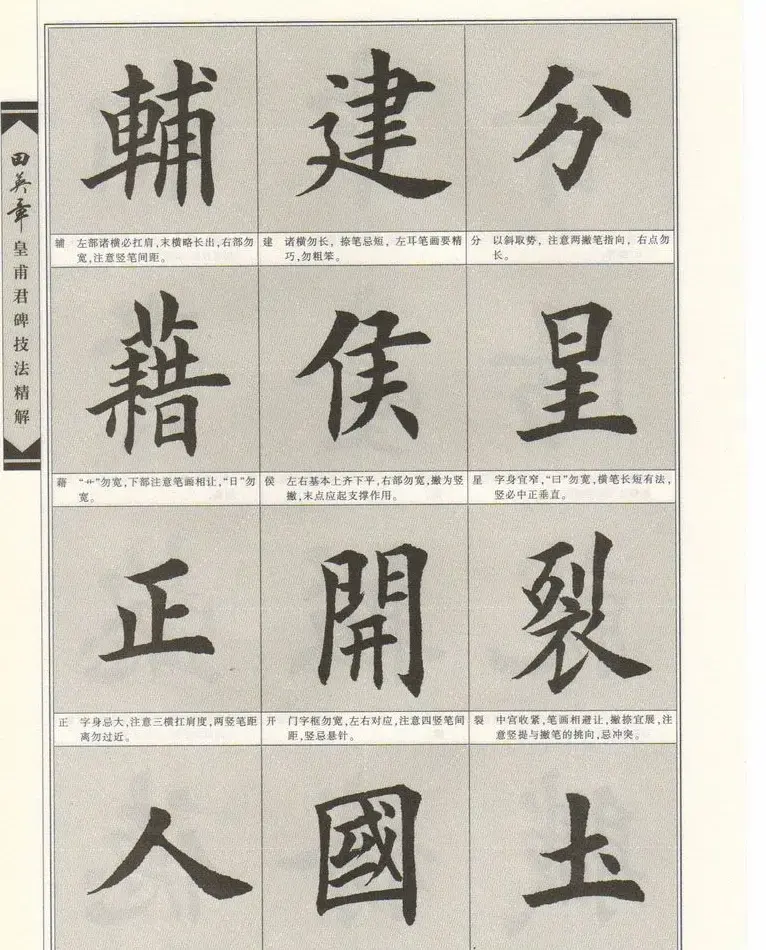 分
分 以斜取势，注意两撇笔指向，右点勿
长。
星
星 字身宜窄，“曰”勿宽，横笔长短有法，
竖必中正垂直。
裂
裂 中宫收紧，笔画相避让，撇捺宜展，注
意竖提与撇笔的挑向，忌冲突。
圡
建
建 诸横勿长，捺笔忌短，左耳笔画要精
巧，勿粗笨。
侯
侯 左右基本上齐下平，右部勿宽，撇为竖
撇，末点应起支撑作用。
開
开 门字框勿宽，左右对应，注意四竖笔间
距，竖忌悬针。
國
輔
辅 左部诸横必扛肩，末横略长出，右部勿
宽，注意竖笔间距。
藉
藉 “艹”勿宽，下部注意笔画相让，“日”勿
宽。
正
正 字身忌大，注意三横扛肩度，两竖笔距
离勿过近。
人
田英章 皇甫君碑技法精解